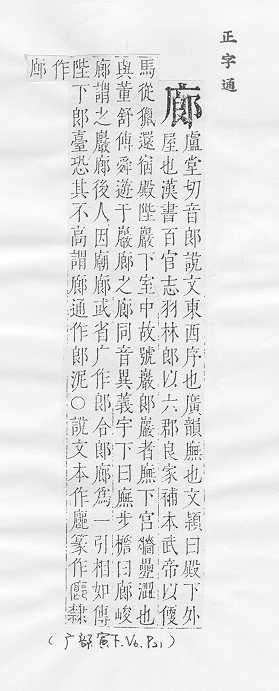 正字通
廊 盧堂切音郎說文東西序也廣韻廡也文穎曰殿下外
屋也漢書百官志羽林郎以六郡良家補本武帝以便
馬從獵還宿殿陛巖下室中故號巖郎巖者廡下宮牆壘澀也
與董舒傳舜遊于巖廊之廊同音異義字下曰廡步櫩曰廊峻
廊謂之巖廊後人因廟廊或省广作郎合郎廊爲一引相如傳
陛下郎臺恐其不高謂廊通作郎泥○說文本作𢊍篆作𢊍隸
作廊
(广部.寅下.V6.P31)